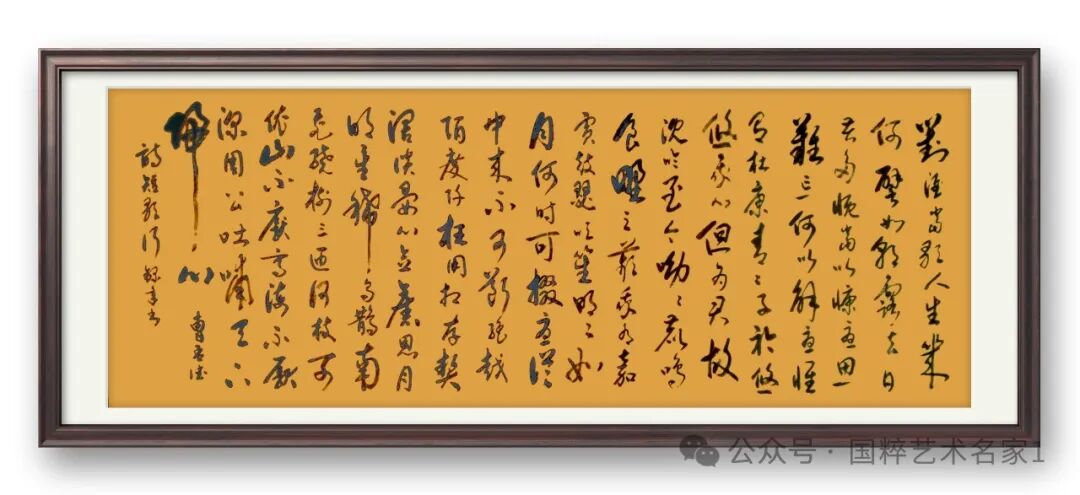 對酒當歌人生幾
何譬如朝露去日
苦多慨當以慷憂思
難忘何以解憂唯
有杜康青々子衿悠
悠我心但為君故
沈吟至今呦々鹿鳴
食野之蘋我有嘉
賓鼓瑟吹笙明々如
月何時可掇憂從
中來不可斷絕越
陌度阡枉用相存契
闊談讌心念舊恩月
明星稀烏鵲南
飛繞樹三匝何枝可
依山不厭高海不厭
深周公吐哺天下
歸心 曹孟德
詩短歌行
公众号 · 国粹艺术名家1